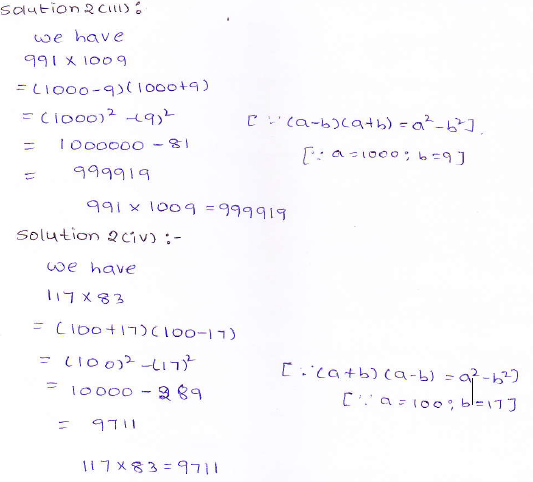 Solution 2(iii):
we have
991 × 1009
= (1000-9)(1000+9)
= (1000)² -(9)² [∵ (a-b)(a+b) = a²-b²].
= 1000000 - 81 [∵ a=1000; b=9]
= 999919
991 × 1009 = 999919
Solution 2(iv) :-
we have
117 × 83
= (100+17)(100-17)
= (100)² -(17)² [∵ (a+b) (a-b) = a²-b²]
= 10000 - 289 [∵ a = 100; b=17]
= 9711
117 × 83 = 9711